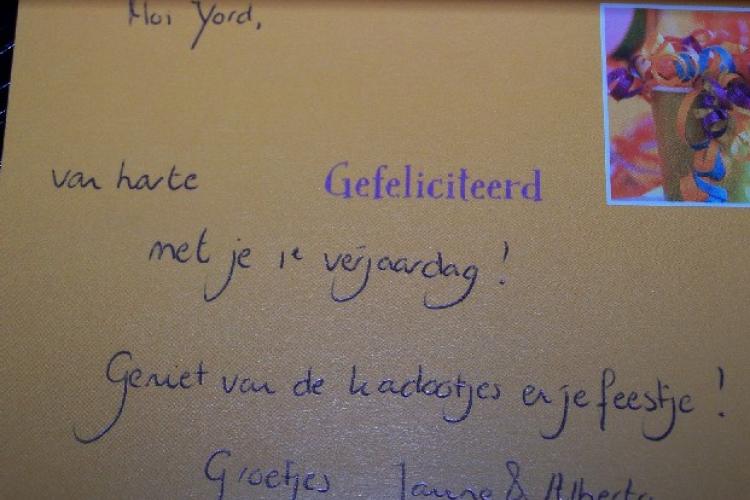 Moi Yord,
van harte Gefeliciteerd
met je 1e verjaardag!
Geniet van de kadootjes en je feestje!
Groetjes